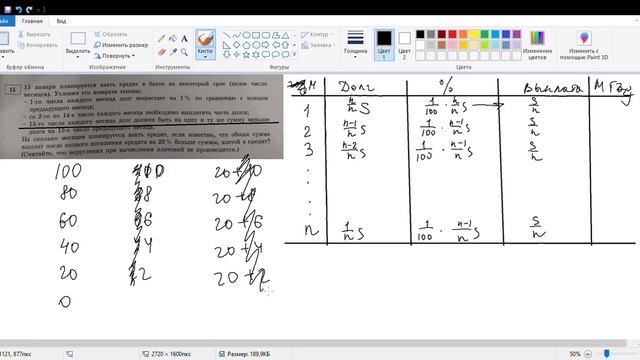 Вставить
Выделить
Обрезать
Изменить размер
Повернуть
Изображение
Инструменты
Кисти
Контур
Заливка
Фигуры
Толщина
Цвет 1
Цвет 2
Цвета
Изменение цветов
Изменить с помощью Paint 3D
15
15 января планируется взять кредит в банке на некоторый срок (целое число
месяцев). Условия его возврата таковы:
– 1-го числа каждого месяца долг возрастает на 1% по сравнению с концом
предыдущего месяца;
– со 2-го по 14-е число каждого месяца необходимо выплатить часть долга;
– 15-го числа каждого месяца долг должен быть на одну и ту же сумму меньше
долга на 15-е число предыдущего месяца.
На сколько месяцев планируется взять кредит, если известно, что общая сумма
выплат после полного погашения кредита на 20% больше суммы, взятой в кредит?
(Считайте, что округления при вычислении платежей не производятся.)
М Долг % Выплата
1 n/n S 1/100 · n/n S S/n
2 n-1/n S 1/100 · n-1/n S S/n
3 n-2/n S 1/100 · n-1/n S S/n
n 1/n S 1/100 · n-1/n S S/n
100
80
60 20+6
40 20+4
20 20+2
0
1121, 877пкс
2720 × 1600пкс
Размер: 189,9КБ
50%